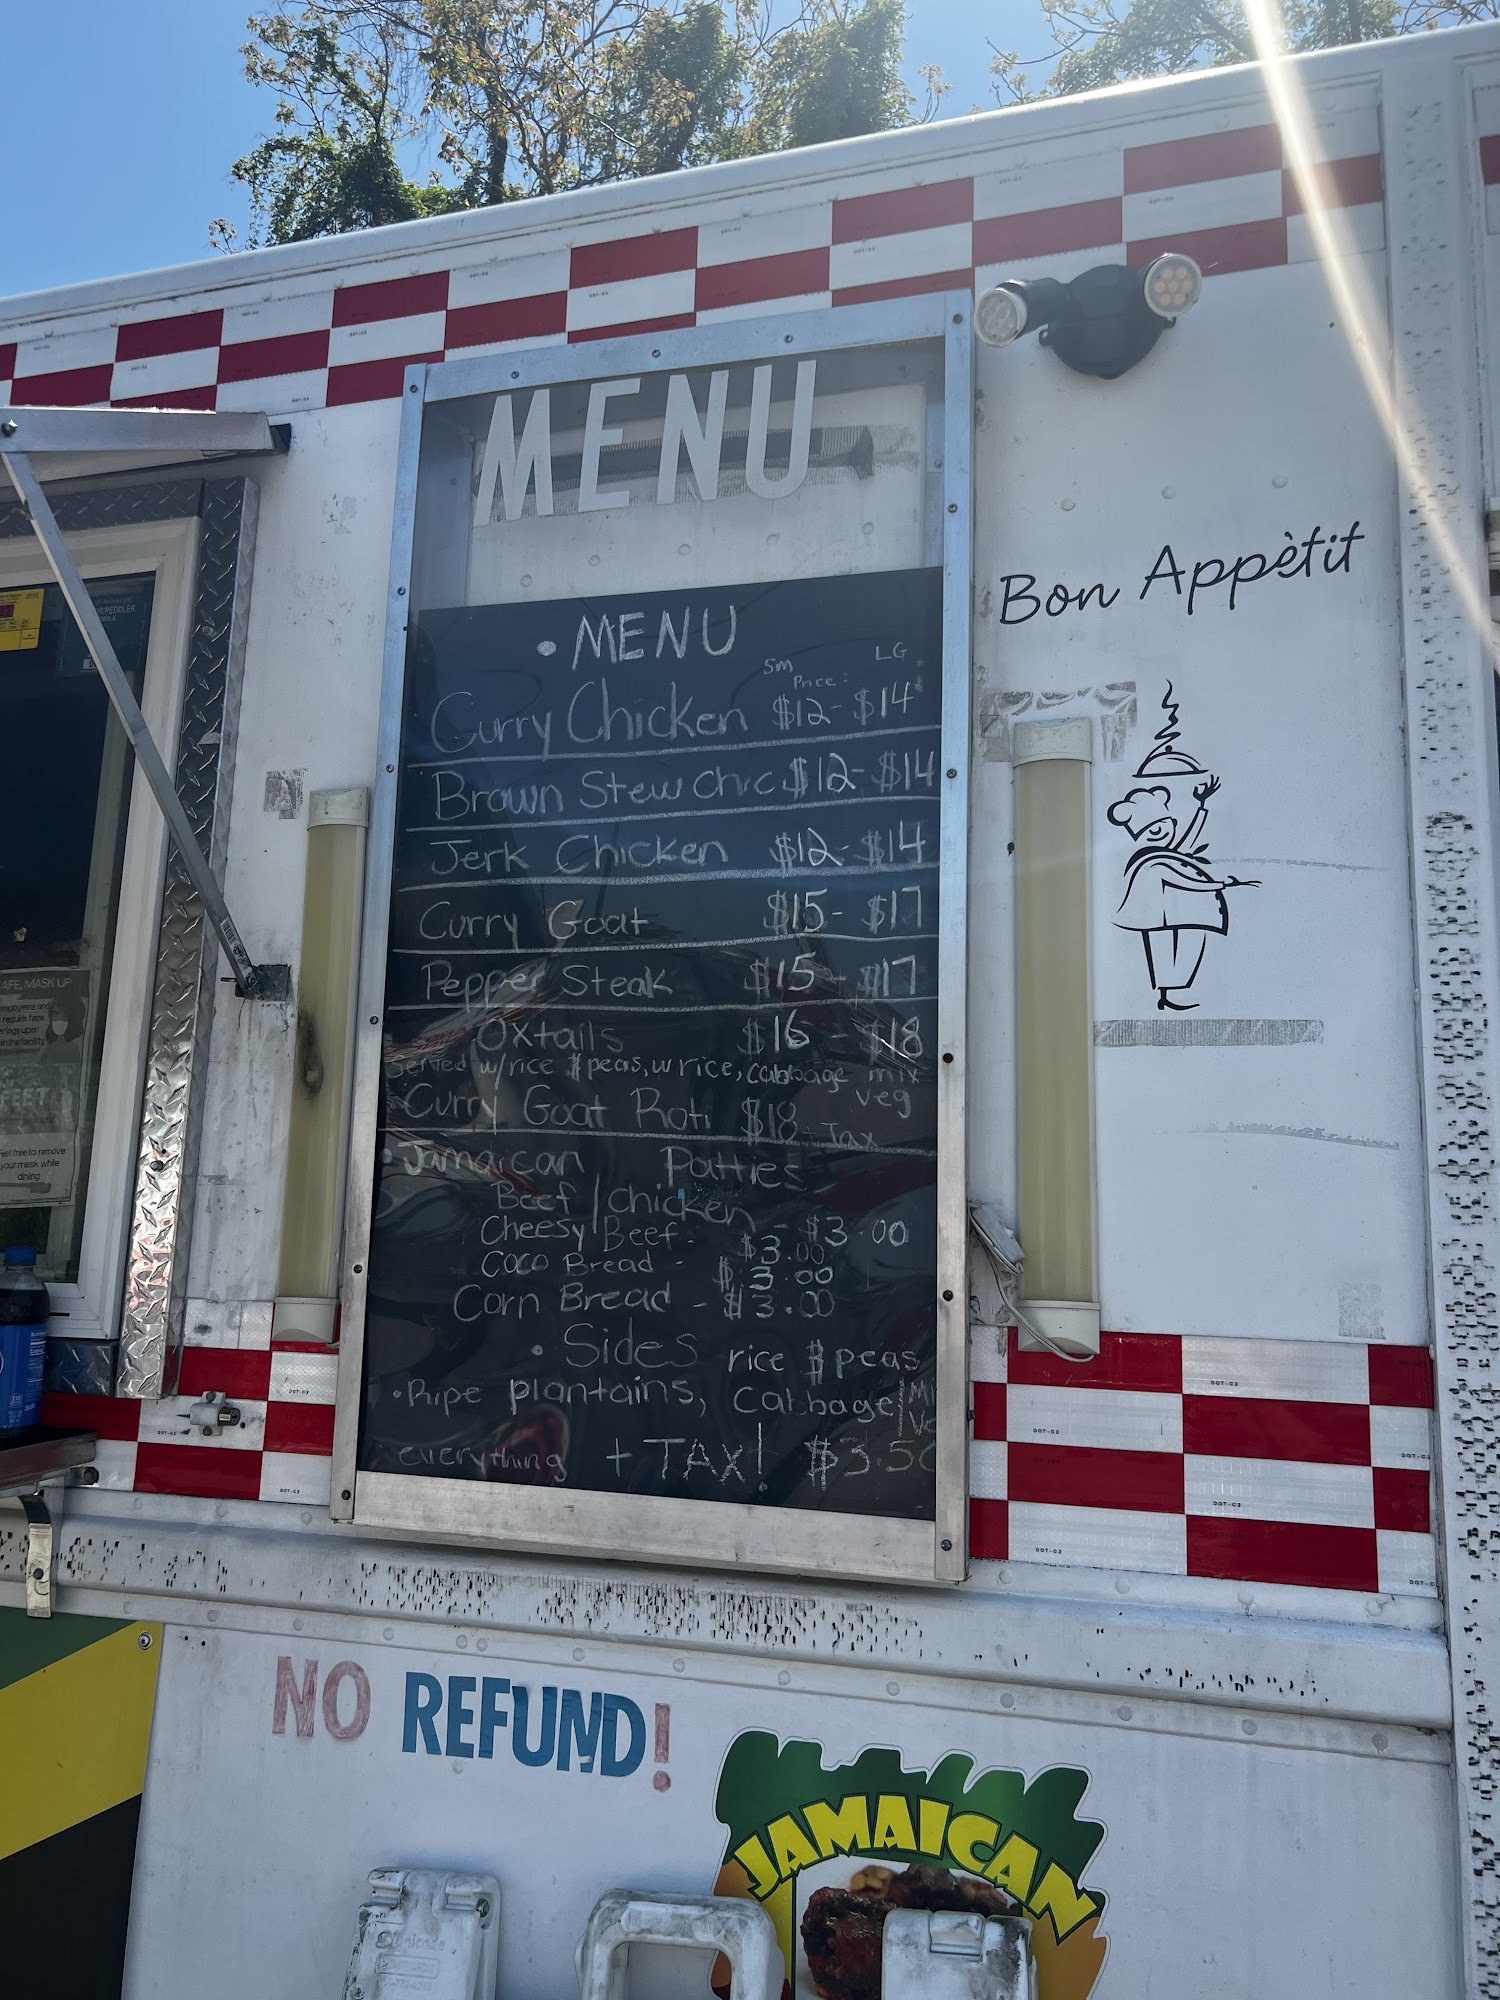 MENU
• MENU
Sm LG
Price:
Curry Chicken $12 - $14
Brown Stew Chic $12 - $14
Jerk Chicken $12 - $14
Curry Goat $15 - $17
Pepper Steak $15 - $17
Oxtails $16 - $18
Served w/rice $ peas, w rice, cabbage mix
veg
Curry Goat Roti $18 + Tax
• Jamaican Patties
Beef / Chicken - $3.00
Cheesy Beef - $3.00
Coco Bread - $3.00
Corn Bread - $3.00
• Sides rice $ peas
• Ripe plantains, Cabbage
everything + TAX! $3.50
Bon Appètit
AFE, MASK UP
require face
in the facility
FEET
Feel free to remove
your mask while
dining
NO REFUND!
JAMAICAN